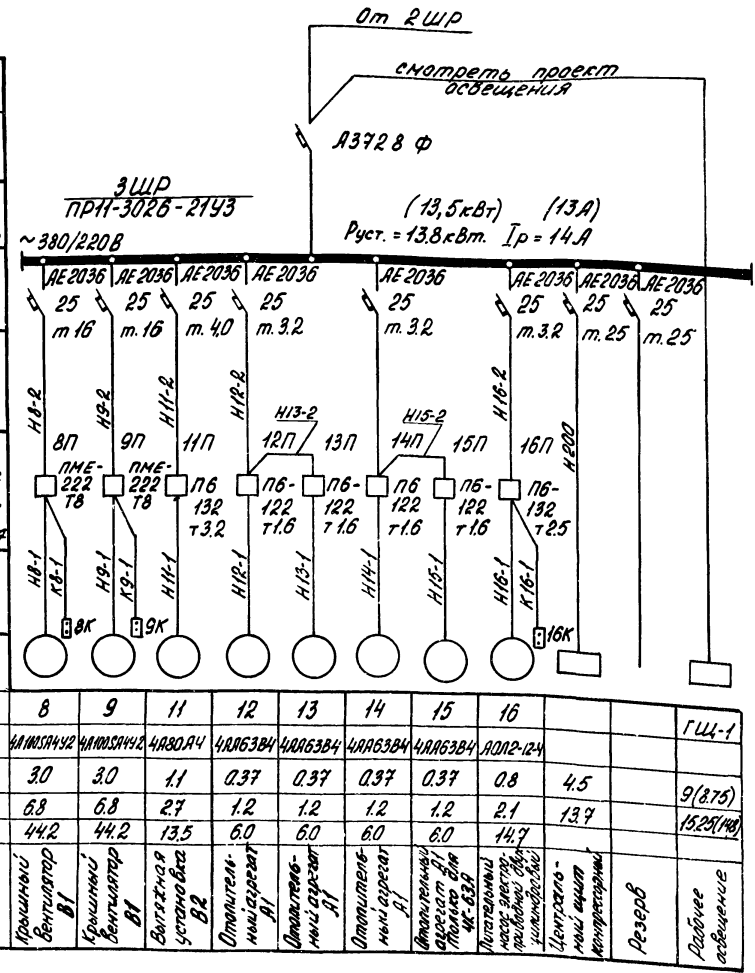 От 2ШР
смотреть проект
освещения
А3728 Ф
3ШР
ПР11-3026-21У3
(13,5кВт) (13А)
~380/220В
Руст. = 13.8кВт. Iр = 14А
АЕ2036 АЕ2036 АЕ2036 АЕ2036 АЕ2036 АЕ2036 АЕ2036 АЕ2036
25 25 25 25 25 25 25 25
т16 т.16 т.4,0 т.3.2 т.3.2 т.3.2 т.25 т.25
Н8-2 Н9-2 Н11-2 Н12-2 Н16-2 Н200
Н13-2 Н15-2
8П 9П 11П 12П 13П 14П 15П 16П
ПМЕ- ПМЕ- П6 П6- П6- П6 П6- П6-
222 222 132 122 122 122 122 132
Т8 Т8 т3.2 т1.6 т1.6 т1.6 т1.6 т2.5
Н8-1 К8-1 Н9-1 К9-1 Н11-1 Н12-1 Н13-1 Н14-1 Н15-1 Н16-1 К16-1
8К 9К 16К
8 9 11 12 13 14 15 16 ГЩ-1
4А100SА4У2 4А100SА4У2 4А80А4 4АА63В4 4АА63В4 4АА63В4 4АА63В4 АОЛ2-12-4
3.0 3.0 1.1 0.37 0.37 0.37 0.37 0.8 4.5 9(8.75)
6.8 6.8 2.7 1.2 1.2 1.2 1.2 2.1 13.7
44.2 44.2 13.5 6.0 6.0 6.0 6.0 14.7
Крышный
вентилятор
В1
Крышный
вентилятор
В1
Вытяжная
установка
В2
Отопитель-
ный агрегат
А1
Отопитель-
ный агрегат
А1
Отопитель-
ный агрегат
А1
Отопительный
агрегат А1
только для
ЧК-63А
Питательный
насос электро-
приводной двух-
цилиндровый
Централь-
ный щит
компрессорный
Резерв
Рабочее
освещение